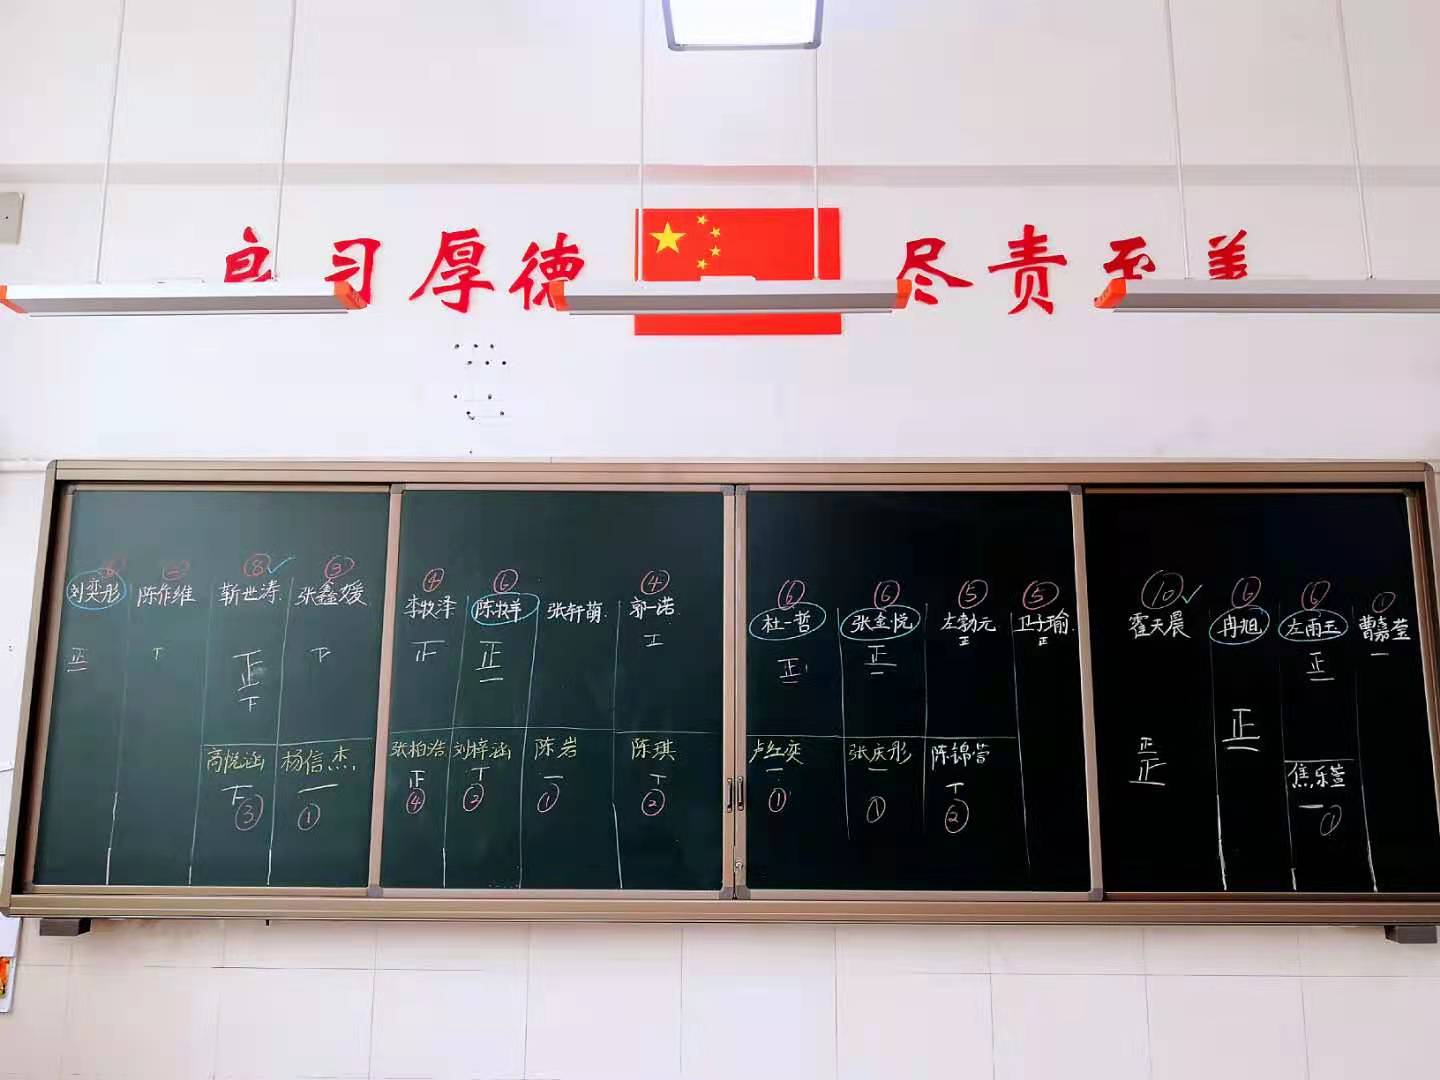 自习厚德 尽责至美
⑥ ② ⑧ ③ ④ ⑥ ④ ⑥ ⑥ ⑤ ⑤ ⑩ ⑥ ⑥ ①
刘奕彤 陈作维 靳世涛 张鑫媛 李牧泽 陈牧羊 张轩萌 郭一诺 杜一哲 张金悦 左勃元 卫子瑜 霍天晨 冉旭 左雨玉 曹嘉莹
正一 丅 正下 下 正 正一 正 正一 正一 正 正 正正 正一 正一 一
高悦涵 杨信杰 张柏浩 刘梓涵 陈岩 陈琪 卢红奕 张庆彤 陈锦 焦乐萱
下 一 正 丅 一 丅 一 一 丅 一
③ ① ④ ② ① ② ① ① ② ①